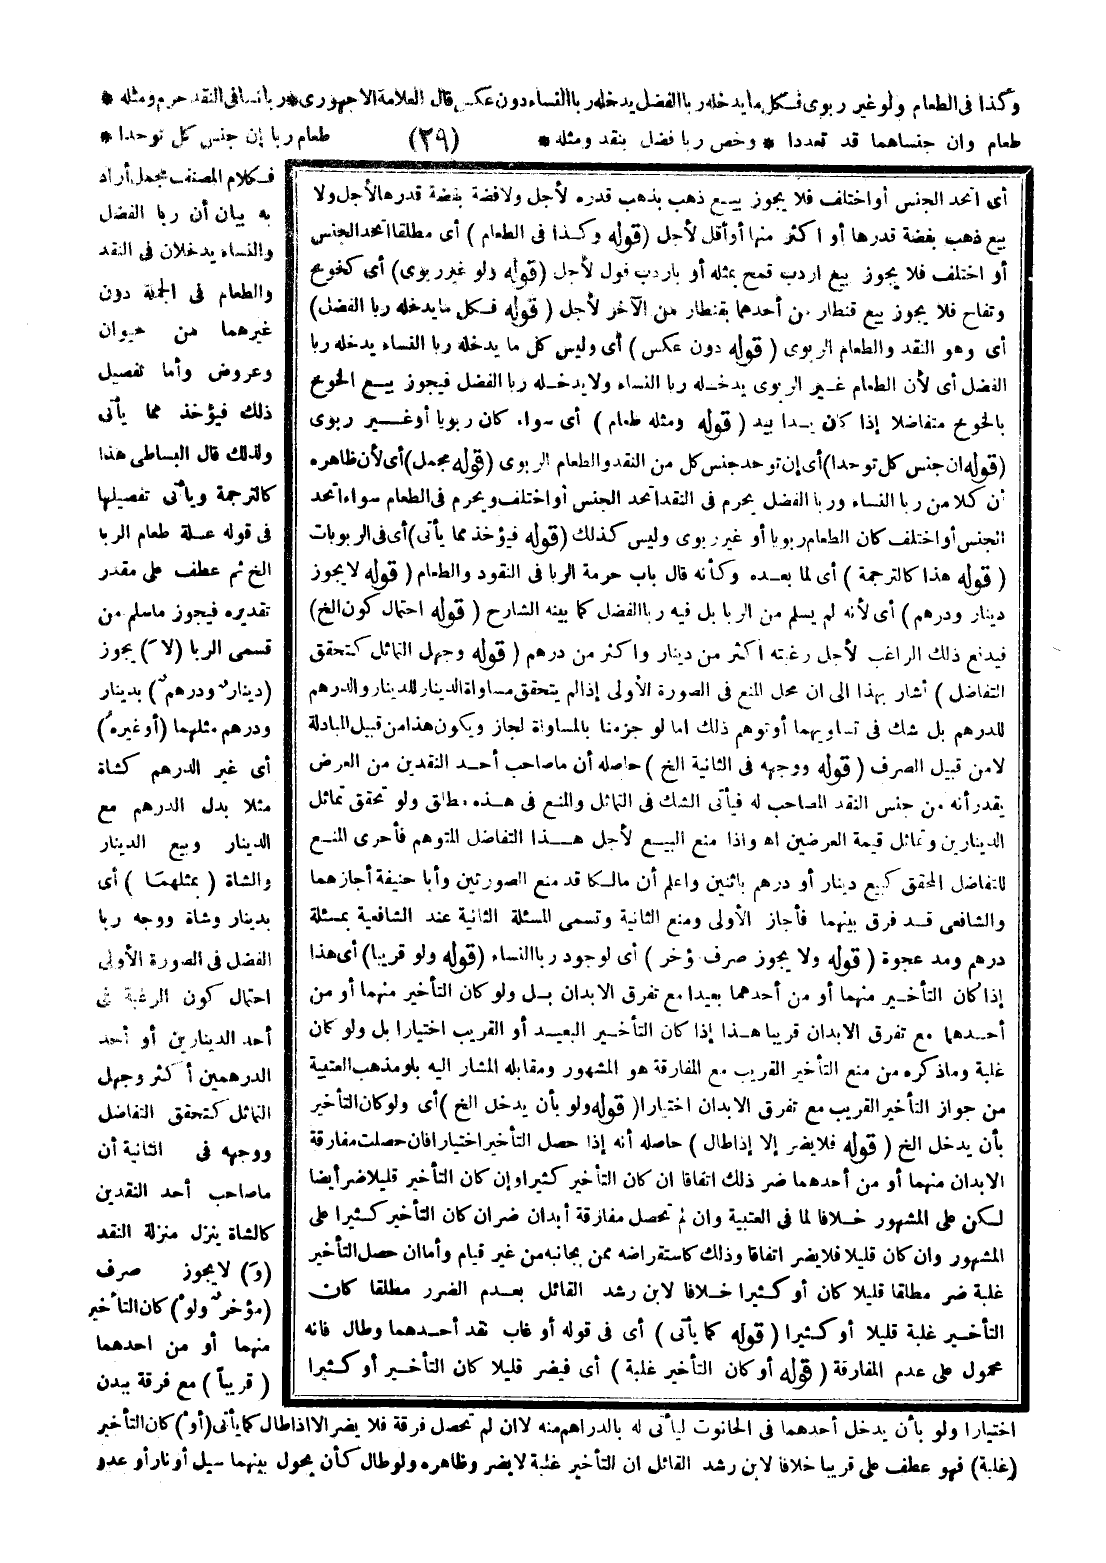 وكذا فى الطعام ولو غير ربوى فكل ما يدخله ربا الفضل يدخله ربا النساء دون عكس قال العلامة الاجهورى * ربا نسا فى النقد حرم ومثله *
طعام وان جنساهما قد تعددا * وخص ربا فضل بنقد ومثله * (٢٩) طعام ربا إن جنس كل توحدا *
فكلام المصنف مجمل أراد
به بيان أن ربا الفضل
والنساء يدخلان فى النقد
والطعام فى الجملة دون
غيرهما من حيوان
وعروض وأما تفصيل
ذلك فيؤخذ مما يأتى
ولذلك قال البساطى هذا
كالترجمة ويأتى تفصيلها
فى قوله علة طعام الربا
الخ ثم عطف على مقدر
تقديره فيجوز ما سلم من
قسمى الربا (لا) يجوز
(دينار ودرهم) بدينار
ودرهم مثلهما (أو غيره)
أى غير الدرهم كشاة
مثلا بدل الدرهم مع
الدينار وبيع الدينار
والشاة (بمثلهما) أى
بدينار وشاة ووجه ربا
الفضل فى الصورة الأولى
احتمال كون الرغبة فى
أحد الدينارين أو أحد
الدرهمين أكثر وجهل
التماثل كتحقق التفاضل
ووجهه فى الثانية أن
ما صاحب أحد النقدين
كالشاة ينزل منزلة النقد
(و) لا يجوز صرف
(مؤخر ولو) كان التأخير
منهما أو من احدهما
(قريبا) مع فرقة ببدن
اختيارا ولو بأن يدخل أحدهما فى الحانوت ليأتى له بالدراهم منه لا ان لم تحصل فرقة فلا يضر الا اذا طال كما يأتى (أو) كان التأخير
(غلبة) فهو عطف على قريبا خلافا لابن رشد القائل ان التأخير غلبة لا يضر وظاهره ولو طال كأن يحول بينهما سيل أو نار أو عدو
أى اتحد الجنس أو اختلف فلا يجوز بيع ذهب بذهب قدره لأجل ولا فضة بفضة قدرها لأجل ولا
بيع ذهب بفضة قدرها أو اكثر منها أو أقل لأجل (قوله وكذا فى الطعام) أى مطلقا اتحد الجنس
أو اختلف فلا يجوز بيع اردب قمح بمثله أو باردب فول لأجل (قوله ولو غير ربوى) أى كخوخ
وتفاح فلا يجوز بيع قنطار من أحدهما بقنطار من الآخر لأجل (قوله فكل ما يدخله ربا الفضل)
أى وهو النقد والطعام الربوى (قوله دون عكس) أى وليس كل ما يدخله ربا النساء يدخله ربا
الفضل أى لأن الطعام غير الربوى يدخله ربا النساء ولا يدخله ربا الفضل فيجوز بيع الخوخ
بالخوخ متفاضلا إذا كان يدا بيد (قوله ومثله طعام) أى سواء كان ربويا أو غير ربوى
(قوله ان جنس كل توحدا) أى إن توحد جنس كل من النقد والطعام الربوى (قوله مجمل) أى لأن ظاهره
أن كلا من ربا النساء وربا الفضل يحرم فى النقد اتحد الجنس أو اختلف ويحرم فى الطعام سواء اتحد
الجنس أو اختلف كان الطعام ربويا أو غير ربوى وليس كذلك (قوله فيؤخذ مما يأتى) أى فى الربويات
(قوله هذا كالترجمة) أى لما بعده وكأنه قال باب حرمة الربا فى النقود والطعام (قوله لا يجوز
دينار ودرهم) أى لأنه لم يسلم من الربا بل فيه ربا الفضل كما بينه الشارح (قوله احتمال كون الخ)
فيدفع ذلك الراغب لأجل رغبته اكثر من دينار واكثر من درهم (قوله وجهل التماثل كتحقق
التفاضل) أشار بهذا الى ان محل المنع فى الصورة الأولى إذا لم يتحقق مساواة الدينار للدينار والدرهم
للدرهم بل شك فى تساويهما أو توهم ذلك اما لو جزمنا بالمساواة لجاز ويكون هذا من قبيل المبادلة
لا من قبيل الصرف (قوله ووجهه فى الثانية الخ) حاصله أن ما صاحب أحد النقدين من العرض
يقدر أنه من جنس النقد المصاحب له فيأتى الشك فى التماثل والمنع فى هذه مطلق ولو تحقق تماثل
الدينارين وتماثل قيمة العرضين اه واذا منع البيع لأجل هذا التفاضل المتوهم فأحرى المنع
للتفاضل المحقق كبيع دينار أو درهم باثنين واعلم أن مالكا قد منع الصورتين وأبا حنيفة أجازهما
والشافعى قد فرق بينهما فأجاز الأولى ومنع الثانية وتسمى المسئلة الثانية عند الشافعية بمسئلة
درهم ومد عجوة (قوله ولا يجوز صرف مؤخر) أى لوجود ربا النساء (قوله ولو قريبا) أى هذا
إذا كان التأخير منهما أو من أحدهما بعيدا مع تفرق الابدان بل ولو كان التأخير منهما أو من
أحدهما مع تفرق الابدان قريبا هذا إذا كان التأخير البعيد أو القريب اختيارا بل ولو كان
غلبة وما ذكره من منع التأخير القريب مع المفارقة هو المشهور ومقابله المشار اليه بلو مذهب العتبية
من جواز التأخير القريب مع تفرق الابدان اختيارا (قوله ولو بأن يدخل الخ) أى ولو كان التأخير
بأن يدخل الخ (قوله فلا يضر إلا إذا طال) حاصله أنه إذا حصل التأخير اختيارا فان حصلت مفارقة
الابدان منهما أو من أحدهما ضر ذلك اتفاقا ان كان التأخير كثيرا وإن كان التأخير قليلا ضر أيضا
لكن على المشهور خلافا لما فى العتبية وان لم تحصل مفارقة أبدان ضر ان كان التأخير كثيرا على
المشهور وان كان قليلا فلا يضر اتفاقا وذلك كاستقراضه ممن بجانبه من غير قيام وأما ان حصل التأخير
غلبة ضر مطلقا قليلا كان أو كثيرا خلافا لابن رشد القائل بعدم الضرر مطلقا كان
التأخير غلبة قليلا أو كثيرا (قوله كما يأتى) أى فى قوله أو غاب نقد أحدهما وطال فانه
محمول على عدم المفارقة (قوله أو كان التأخير غلبة) أى فيضر قليلا كان التأخير أو كثيرا